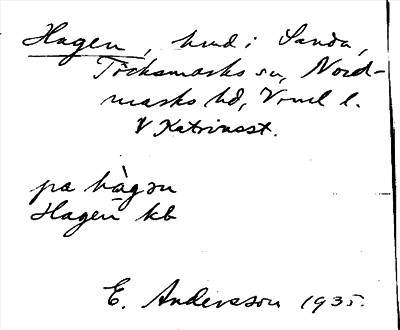 Hagen, hmd i Sanda,
Töcksmarks sn, Nord-
marks hd, Vrml l.
V Katrinsst.
på hàgən
Hagen kb
E. Andersson 1935.